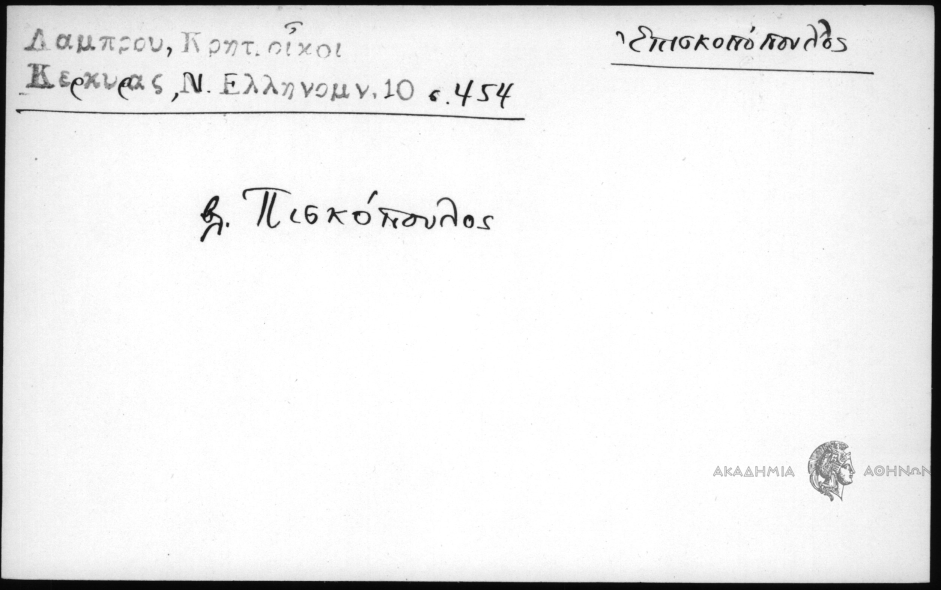 Λαμπρου, Κρητ. οἶκοι
Κερκυρας, Ν. Ελληνομν. 10 σ. 454
Ἐπισκοπόπουλος
βλ. Πισκόπουλος
ΑΚΑΔΗΜΙΑ ΑΘΗΝΩΝ